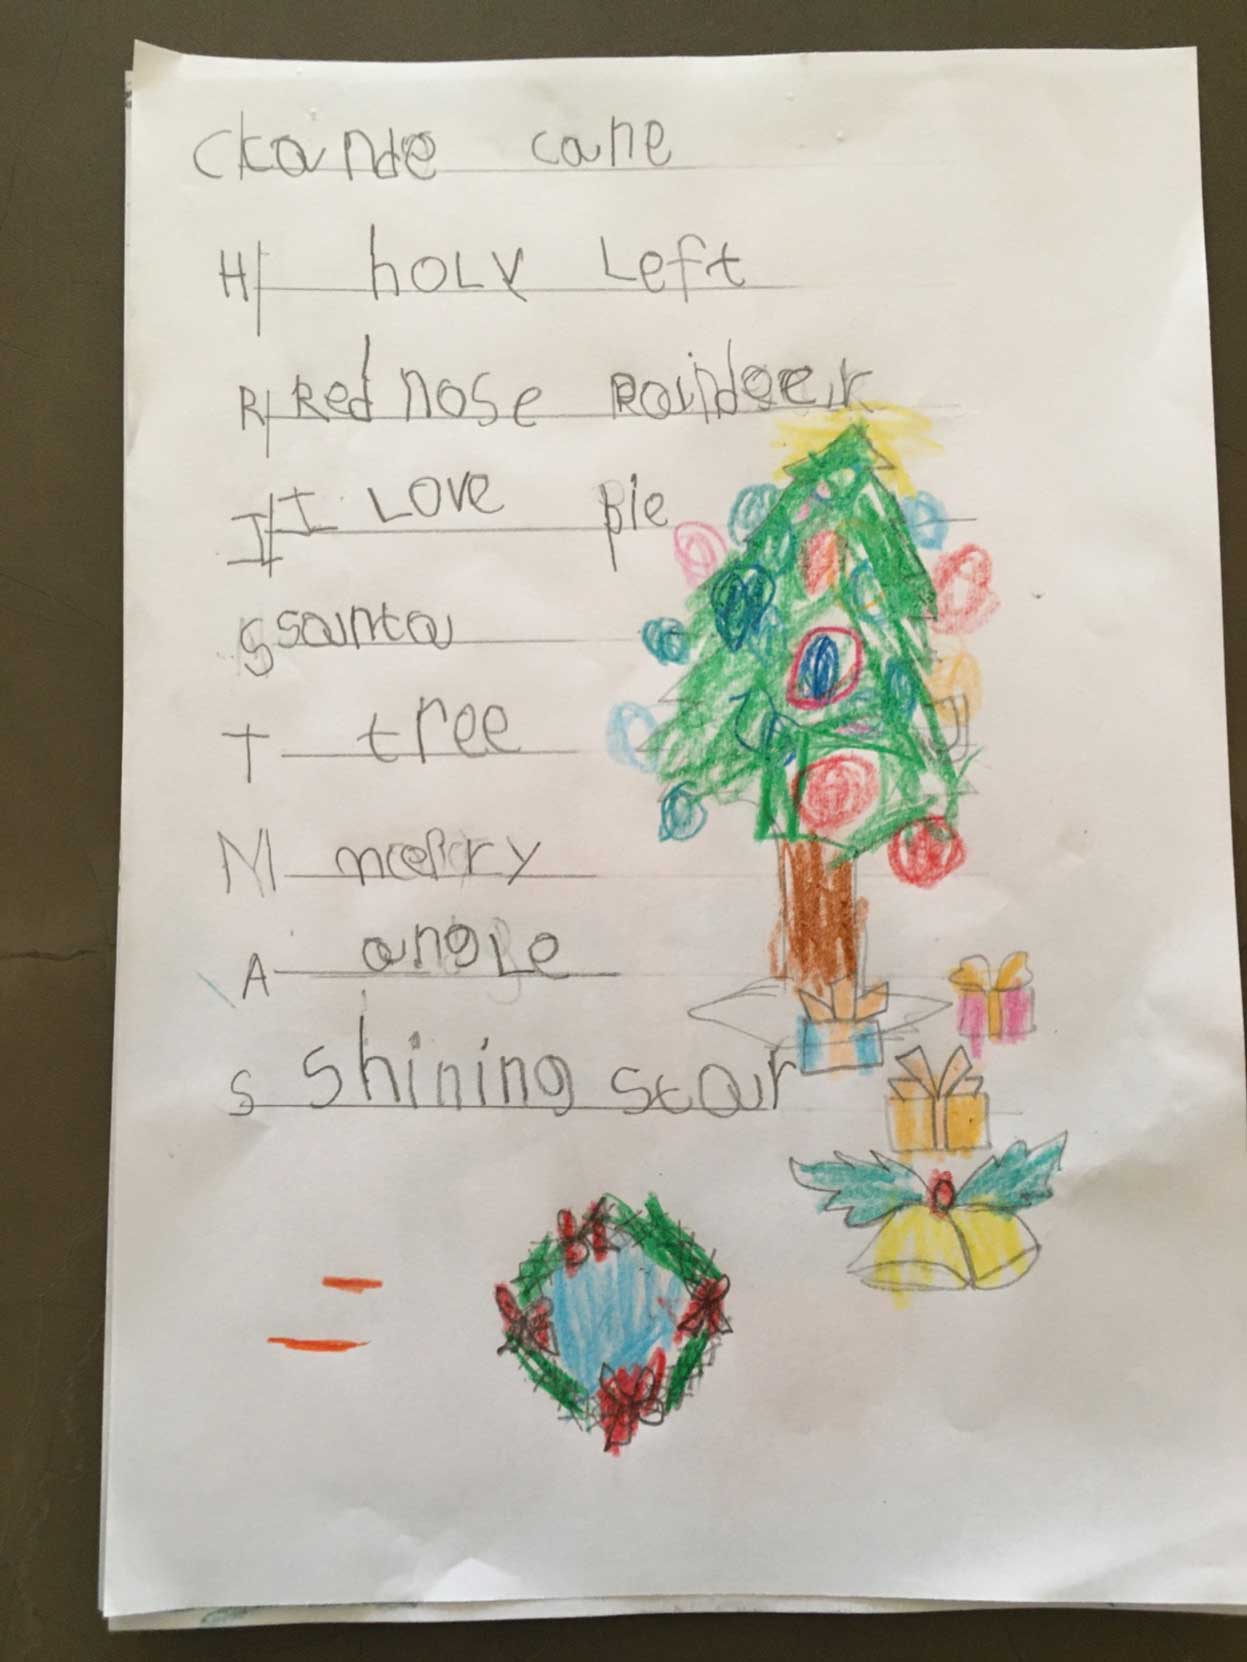 C kande cane
H holy Left
R Red nose Raindeer
I I Love pie
S santa
T tree
M merry
A angle
s shining star